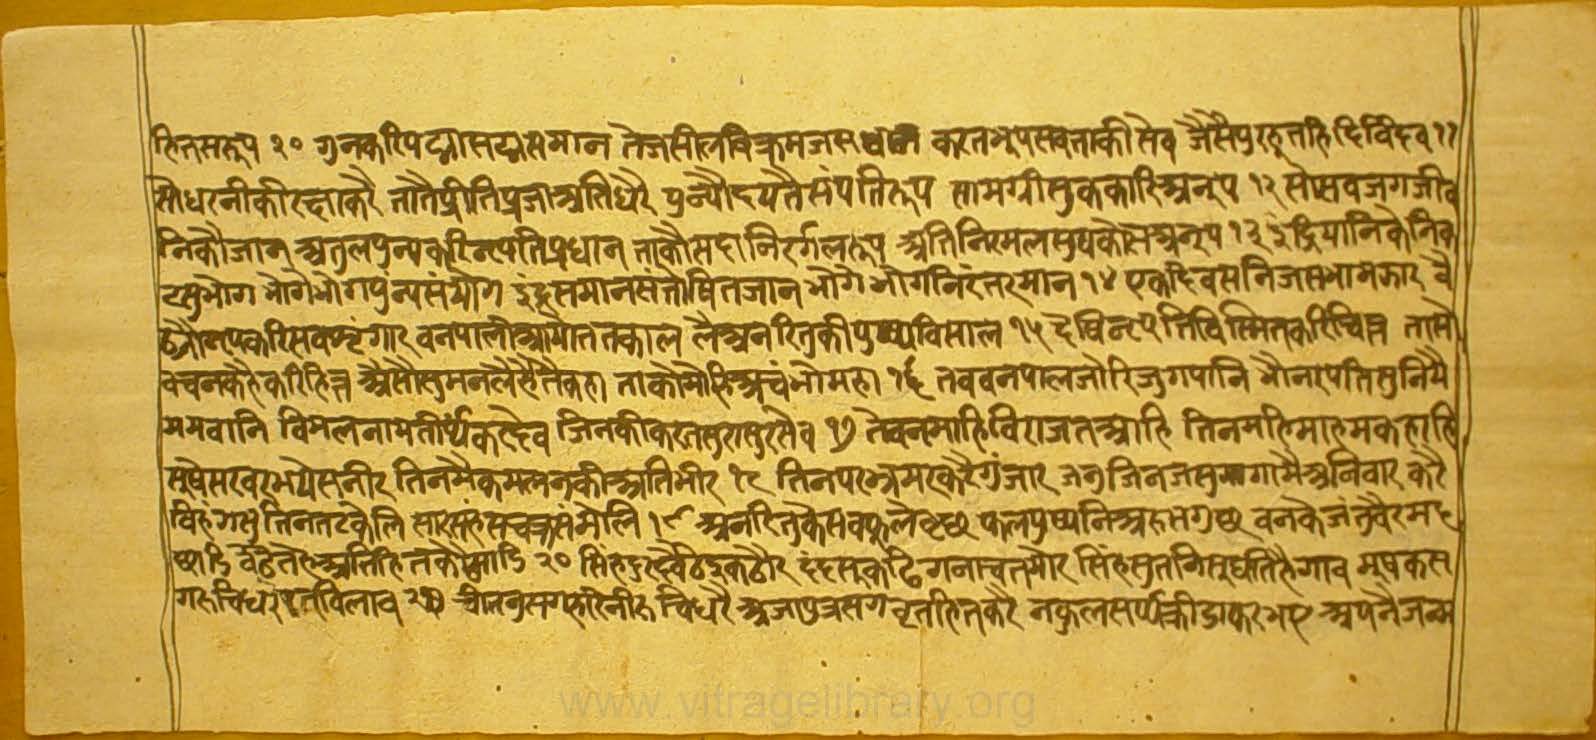 हितसरूप १० गुनकरिपद्मासद्मसमान तेजसीलविक्रमजस करतभूपसबताकी सेव जैसैपुरहूतहिदिविदेव ११
सोधरनीकीरक्षाकरै तातैप्रीतिप्रजाअतिधरै पुन्यौदयतैसंपतिरूप सामग्रीसुककारिअनूप १२ सोसवजगजीव
निकौजान अतुलपुन्यकरिनरपतिप्रधान ताकौसदानिरर्गलरूप अतिनिरमलसुषकोसअनूप १३ इंद्रियानिकेनिक
रसुभोग भोगैभोगपुंन्यसंयोग इंद्रसमानसंतोषितजान भोगैभोगनिरंतरमान १४ एकदिवसनिजसभामझार वै
ठ्यौनृपकरिसबशृंगार वनपालीआयौततकाल लैअनरितुकीपुष्पविसाल १५ देषिनरपतिविस्मितकरिचित्त तासौ
वचनकहैकरिहित्त अैसौसुमनलैहैतैकहा ताकोमोहिअचंभोमहा १६ तबवनपालजोरिजुगपानि भोनरपतिसुनियै
ममवानि विमलनाथतीर्थंकरदेव जिनकीकरतसुरासुरसेव १७ तेवनमाहिविराजतआहि तिनमहिमाहमकहाहि
सूषेसरवरभयेसनीर तिनमैकमलनकीअतिभीर १८ तिनपरभ्रमरकरैगुंजार जनुजिनजसगामैअनिवार करै
विहगसुतिनतटकेलि सारसहंसचक्रसंमेलि १९ अनरितुकेसवफूलेवृछ फलपुष्पनिअरुभगुछ वनकेजंतुवैरमद
छांडि बैठेतेहअतिहितकौमांडि २० सिंहद्वरदबैठेइकठौर गनाचतमोर सिंहसुतनिसूघतिहैगाव मूषकस
गरुचिधरतविलाव २१ चीतनुसगहरिनीरुचिधरै अजापुत्रसगवृतहितकरै नकुलसर्पक्रीडाकरभए अपनैजन्म